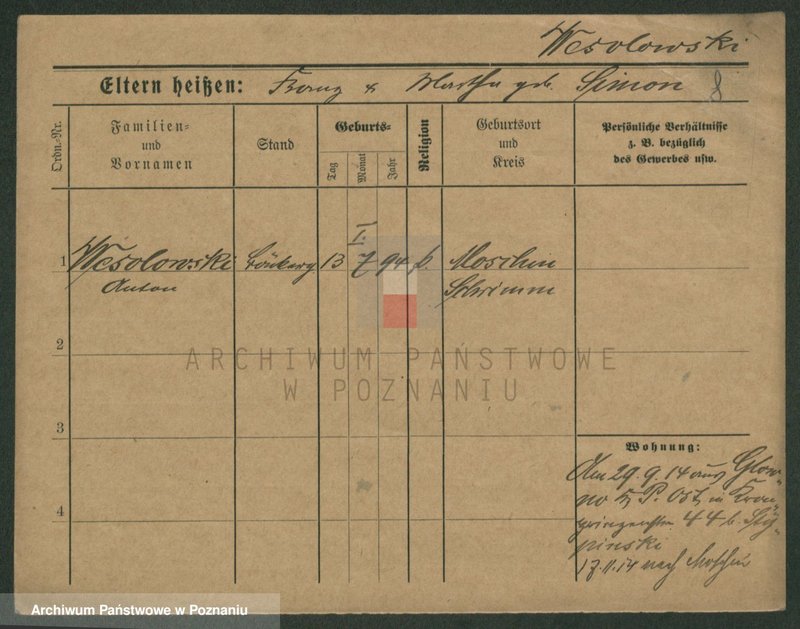 Wesolowski
Eltern heißen: Franz & Martha geb. Simon 8
Ordn.-Nr.
Familien-
und
Vornamen
Stand
Geburts-
Tag
Monat
Jahr
Religion
Geburtsort
und
Kreis
Persönliche Verhältnisse
z. B. bezüglich
des Gewerbes usw.
I.
1 Wesolowski 13 7 94 k. Moschin
Anton Schrimm
2
3
4
Wohnung:
Am 29.9.14 aus Glow-
no Kr. P. Ost, in Kron-
prinzenstr 44 b. Sty-
pinski
17.11.14 nach Moschin
ARCHIWUM PAŃSTWOWE
W POZNANIU
Archiwum Państwowe w Poznaniu